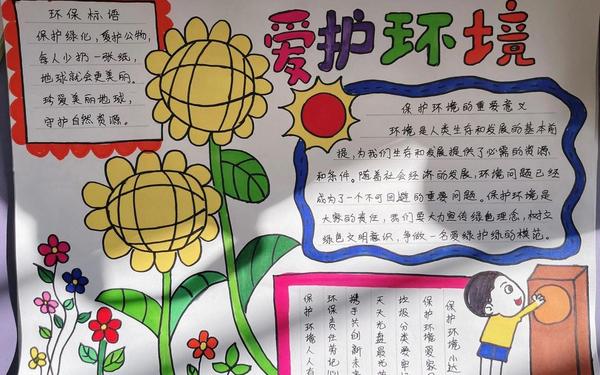 爱护环境
环保标语
保护绿化,爱护公物,
每人少扔一张纸,
地球就会更美丽。
珍爱美丽地球,
守护自然资源。
保护环境的重要意义
环境是人类生存和发展的基本前
提,为我们生存和发展提供了必需的资源
和条件。随着社会经济的发展,环境问题已经
成为了一个不可回避的重要问题。保护环境是
大家的责任,我们要大力宣传绿色理念,树立
绿色文明意识,争做一名爱绿护绿的模范。
保护环境小达
保护环境爱家
垃圾分类爱卑
天天光盘最光
携手共创新未
环保责任劳记
保护环境人人有